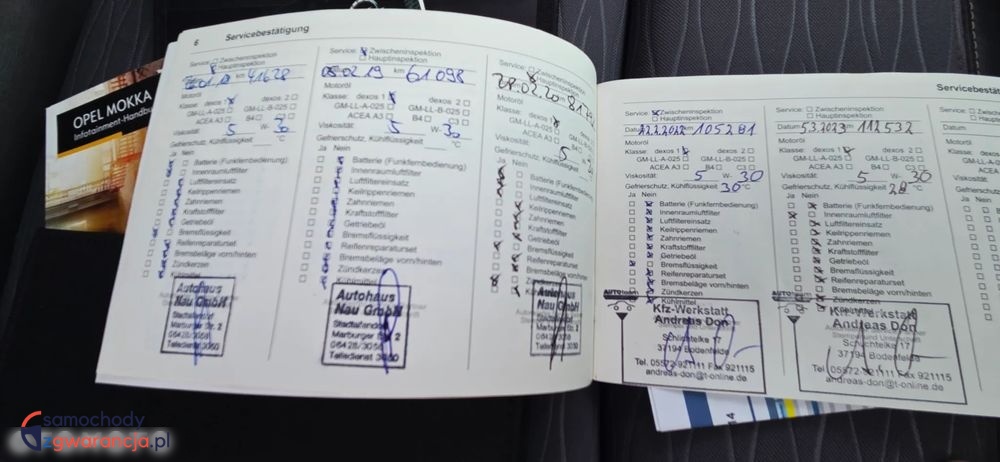 OPEL MOKKA
Infotainment-Handbu
6 Servicebestätigung
Service: Zwischeninspektion
Hauptinspektion
km 41628
Motoröl
Klasse: dexos 1 dexos 2
GM-LL-A-025 GM-LL-B-025
ACEA A3 B4 C3
Viskosität: 5 W- 30
Gefrierschutz, Kühlflüssigkeit °C
Ja Nein
Batterie (Funkfernbedienung)
Innenraumluftfilter
Luftfiltereinsatz
Keilrippenriemen
Zahnriemen
Kraftstofffilter
Getriebeöl
Bremsflüssigkeit
Reifenreparaturset
Bremsbeläge vorn/hinten
Zündkerzen
Kühlmittel
Autohaus
Nau GmbH
Stadtallendorf
Marburger Str. 2
06428/3058
Teiledienst 3050
Service: Zwischeninspektion
Hauptinspektion
05.02.19 km 61098
Motoröl
Klasse: dexos 1 dexos 2
GM-LL-A-025 GM-LL-B-025
ACEA A3 B4 C3
Viskosität: 5 W- 30
Gefrierschutz, Kühlflüssigkeit °C
Ja Nein
Batterie (Funkfernbedienung)
Innenraumluftfilter
Luftfiltereinsatz
Keilrippenriemen
Zahnriemen
Kraftstofffilter
Getriebeöl
Bremsflüssigkeit
Reifenreparaturset
Bremsbeläge vorn/hinten
Zündkerzen
Kühlmittel
Autohaus
Nau GmbH
Stadtallendorf
Marburger Str. 2
06428/3058
Teiledienst 3050
Service: Zwischeninspektion
Hauptinspektion
Motoröl
Klasse: dexos 1
GM-LL-A-025
ACEA A3
Viskosität: 5
Gefrierschutz, Kühlflüssigkeit
Ja Nein
Batterie (Funkfernbedienung)
Innenraumluftfilter
Luftfiltereinsatz
Keilrippenriemen
Zahnriemen
Kraftstofffilter
Getriebeöl
Bremsflüssigkeit
Reifenreparaturset
Bremsbeläge vorn/hinten
Zündkerzen
Kühlmittel
Autohaus
Nau GmbH
Stadtallendorf
Marburger Str. 2
06428/3058
Teiledienst 3050
Servicebestä
Service: Zwischeninspektion
Hauptinspektion
Datum 22.2.2022 105281
Motoröl
Klasse: dexos 1 dexos 2
GM-LL-A-025 GM-LL-B-025
ACEA A3 B4 C3
Viskosität: 5 W- 30
Gefrierschutz, Kühlflüssigkeit 30 °C
Ja Nein
Batterie (Funkfernbedienung)
Innenraumluftfilter
Luftfiltereinsatz
Keilrippenriemen
Zahnriemen
Kraftstofffilter
Getriebeöl
Bremsflüssigkeit
Reifenreparaturset
Bremsbeläge vorn/hinten
Zündkerzen
Kühlmittel
Kfz-Werkstatt
Andreas Don
Schlichteike 17
37194 Bodenfelde
Tel. 05572-921111 Fax 921115
andreas-don@t-online.de
Service: Zwischeninspektion
Hauptinspektion
Datum 5.3.2023 km 112532
Motoröl
Klasse: dexos 1 dexos 2
GM-LL-A-025 GM-LL-B-025
ACEA A3 B4 C3
Viskosität: 5 W- 30
Gefrierschutz, Kühlflüssigkeit 28 °C
Ja Nein
Batterie (Funkfernbedienung)
Innenraumluftfilter
Luftfiltereinsatz
Keilrippenriemen
Zahnriemen
Kraftstofffilter
Getriebeöl
Bremsflüssigkeit
Reifenreparaturset
Bremsbeläge vorn/hinten
Zündkerzen
Kühlmittel
Kfz-Werkstatt
Andreas Don
Schlichteike 17
37194 Bodenfelde
Tel. 05572-921111 Fax 921115
andreas-don@t-online.de
Service:
Datum
Motoröl
Klasse:
Viskosität:
Gefrierschutz, Kühl
Ja Nein
14
samochody
zgwarancja.pl